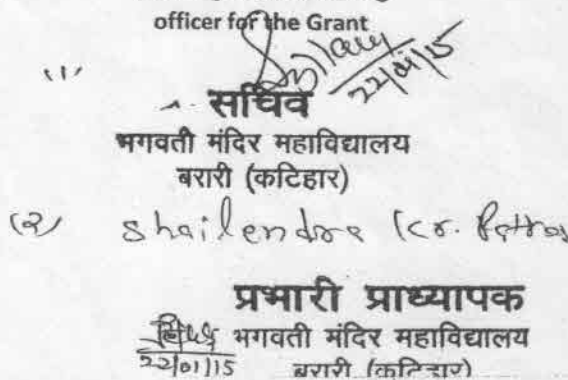 officer for the Grant
(1)
22/01/15
सचिव
भगवती मंदिर महाविद्यालय
बरारी (कटिहार)
(2) Shailendra Kr.
प्रभारी प्राध्यापक
भगवती मंदिर महाविद्यालय
22/01/15
बरारी (कटिहार)